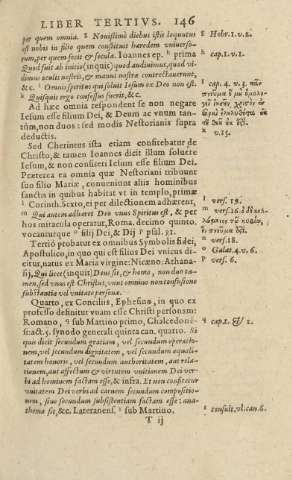 LIBER TERTIVS. 146
per quem omnia. g Nouissimè diebus istis loquutus
est nobis in filio quem constituit hæredem vniuerso-
rum, per quem fecit & sæcula. Ioannes ep. h prima
Quod fuit ab initio (inquit) quod audiuimus, quod vi-
dimus oculis nostris, & manus nostræ contrectauerunt,
&c. i Omnis spiritus qui soluit Iesum ex Deo non est.
k Quisquis ergo confessus fuerit, &c.
Ad hæc omnia respondent se non negare
Iesum esse filium Dei, & Deum ac vnum tan-
tùm, non duos: sed modis Nestorianis supra
deductis.
Sed Cherintus ista etiam confitebatur de
Christo, & tamen Ioannes dicit illum soluere
Iesum, & non confiteri Iesum esse filium Dei.
Præterea ea omnia quæ Nestoriani tribuunt
suo filio Mariæ, conueniunt aliis hominibus
sanctis in quibus habitat vt in templo, primæ
l Corinth. Sexto, ei per dilectionem adhærent,
m Qui autem adhæret Deo vnus Spiritus est, & per
hos miracula operatur, Roma. decimo quinto.
vocanturque o filij Dei, & Dij p psal. 81.
Tertiò probatur ex omnibus Symbolis fidei,
Apostolico, in quo qui est filius Dei vnicus di-
citur, natus ex Maria virgine: Nicæno: Athana-
sij, Qui licet (inquit) Deus sit, & homo, non duo ta-
men, sed vnus est Christus, vnus omnino non confusione
substantiæ sed vnitate personæ.
Quarto, ex Conciliis, Ephesina, in quo ex
professo definitur vnam esse Christi personam:
Romano, q sub Martino primo, Chalcedone-
si act. 5. synodo generali quinta can. quarto. Si
quis dicit secundum gratiam, vel secundum operatio-
nem, vel secundum dignitatem, vel secundum æquali-
tatem honoris, vel secundum authoritatem, aut rela-
tionem, aut affectum & virtutem vnitionem Dei ver-
bi ad hominem factam esse, & infra. Et non confitetur
vnitatem Dei verbi ad carnem secundum compositio-
nem, siue secundum subsistentiam factam esse: ana-
thema sit, &c. Lateranens. r sub Martino.
T ij
g Hebr. 1. v. 2.
h cap. 1. v. 1.
i cap. 4. v. 3.
k v. 15.
l v. 19.
o ver. 18.
o Galat. 4. v. 6.
p vers. 6.
q cap. 1. & 2.
r consult. vl. can. 6.